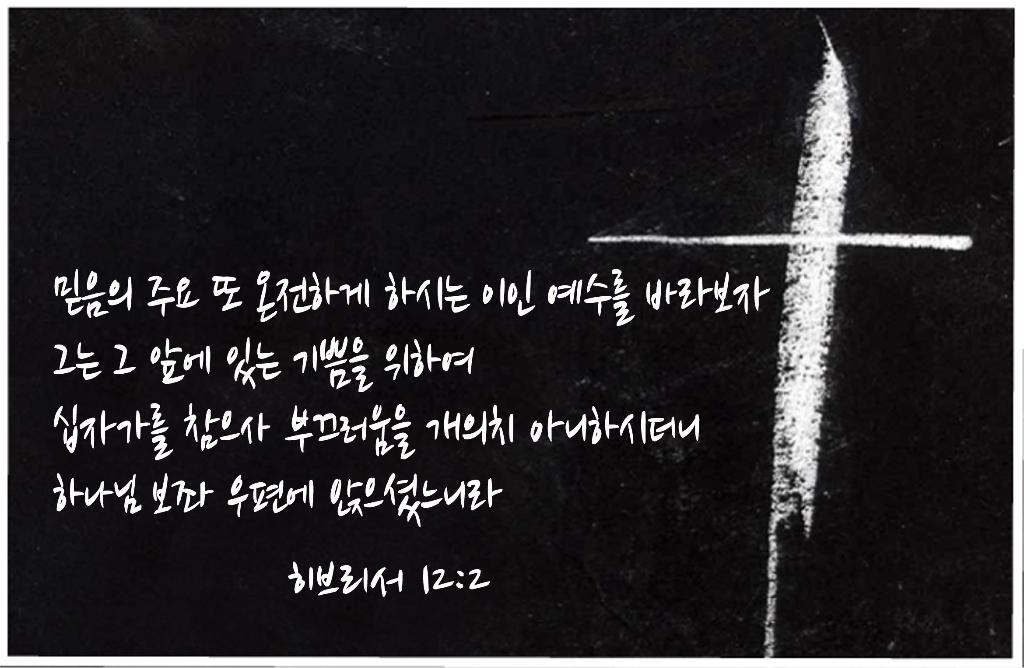 믿음의 주요 또 온전하게 하시는 이인 예수를 바라보자
그는 그 앞에 있는 기쁨을 위하여
십자가를 참으사 부끄러움을 개의치 아니하시더니
하나님 보좌 우편에 앉으셨느니라
히브리서 12:2